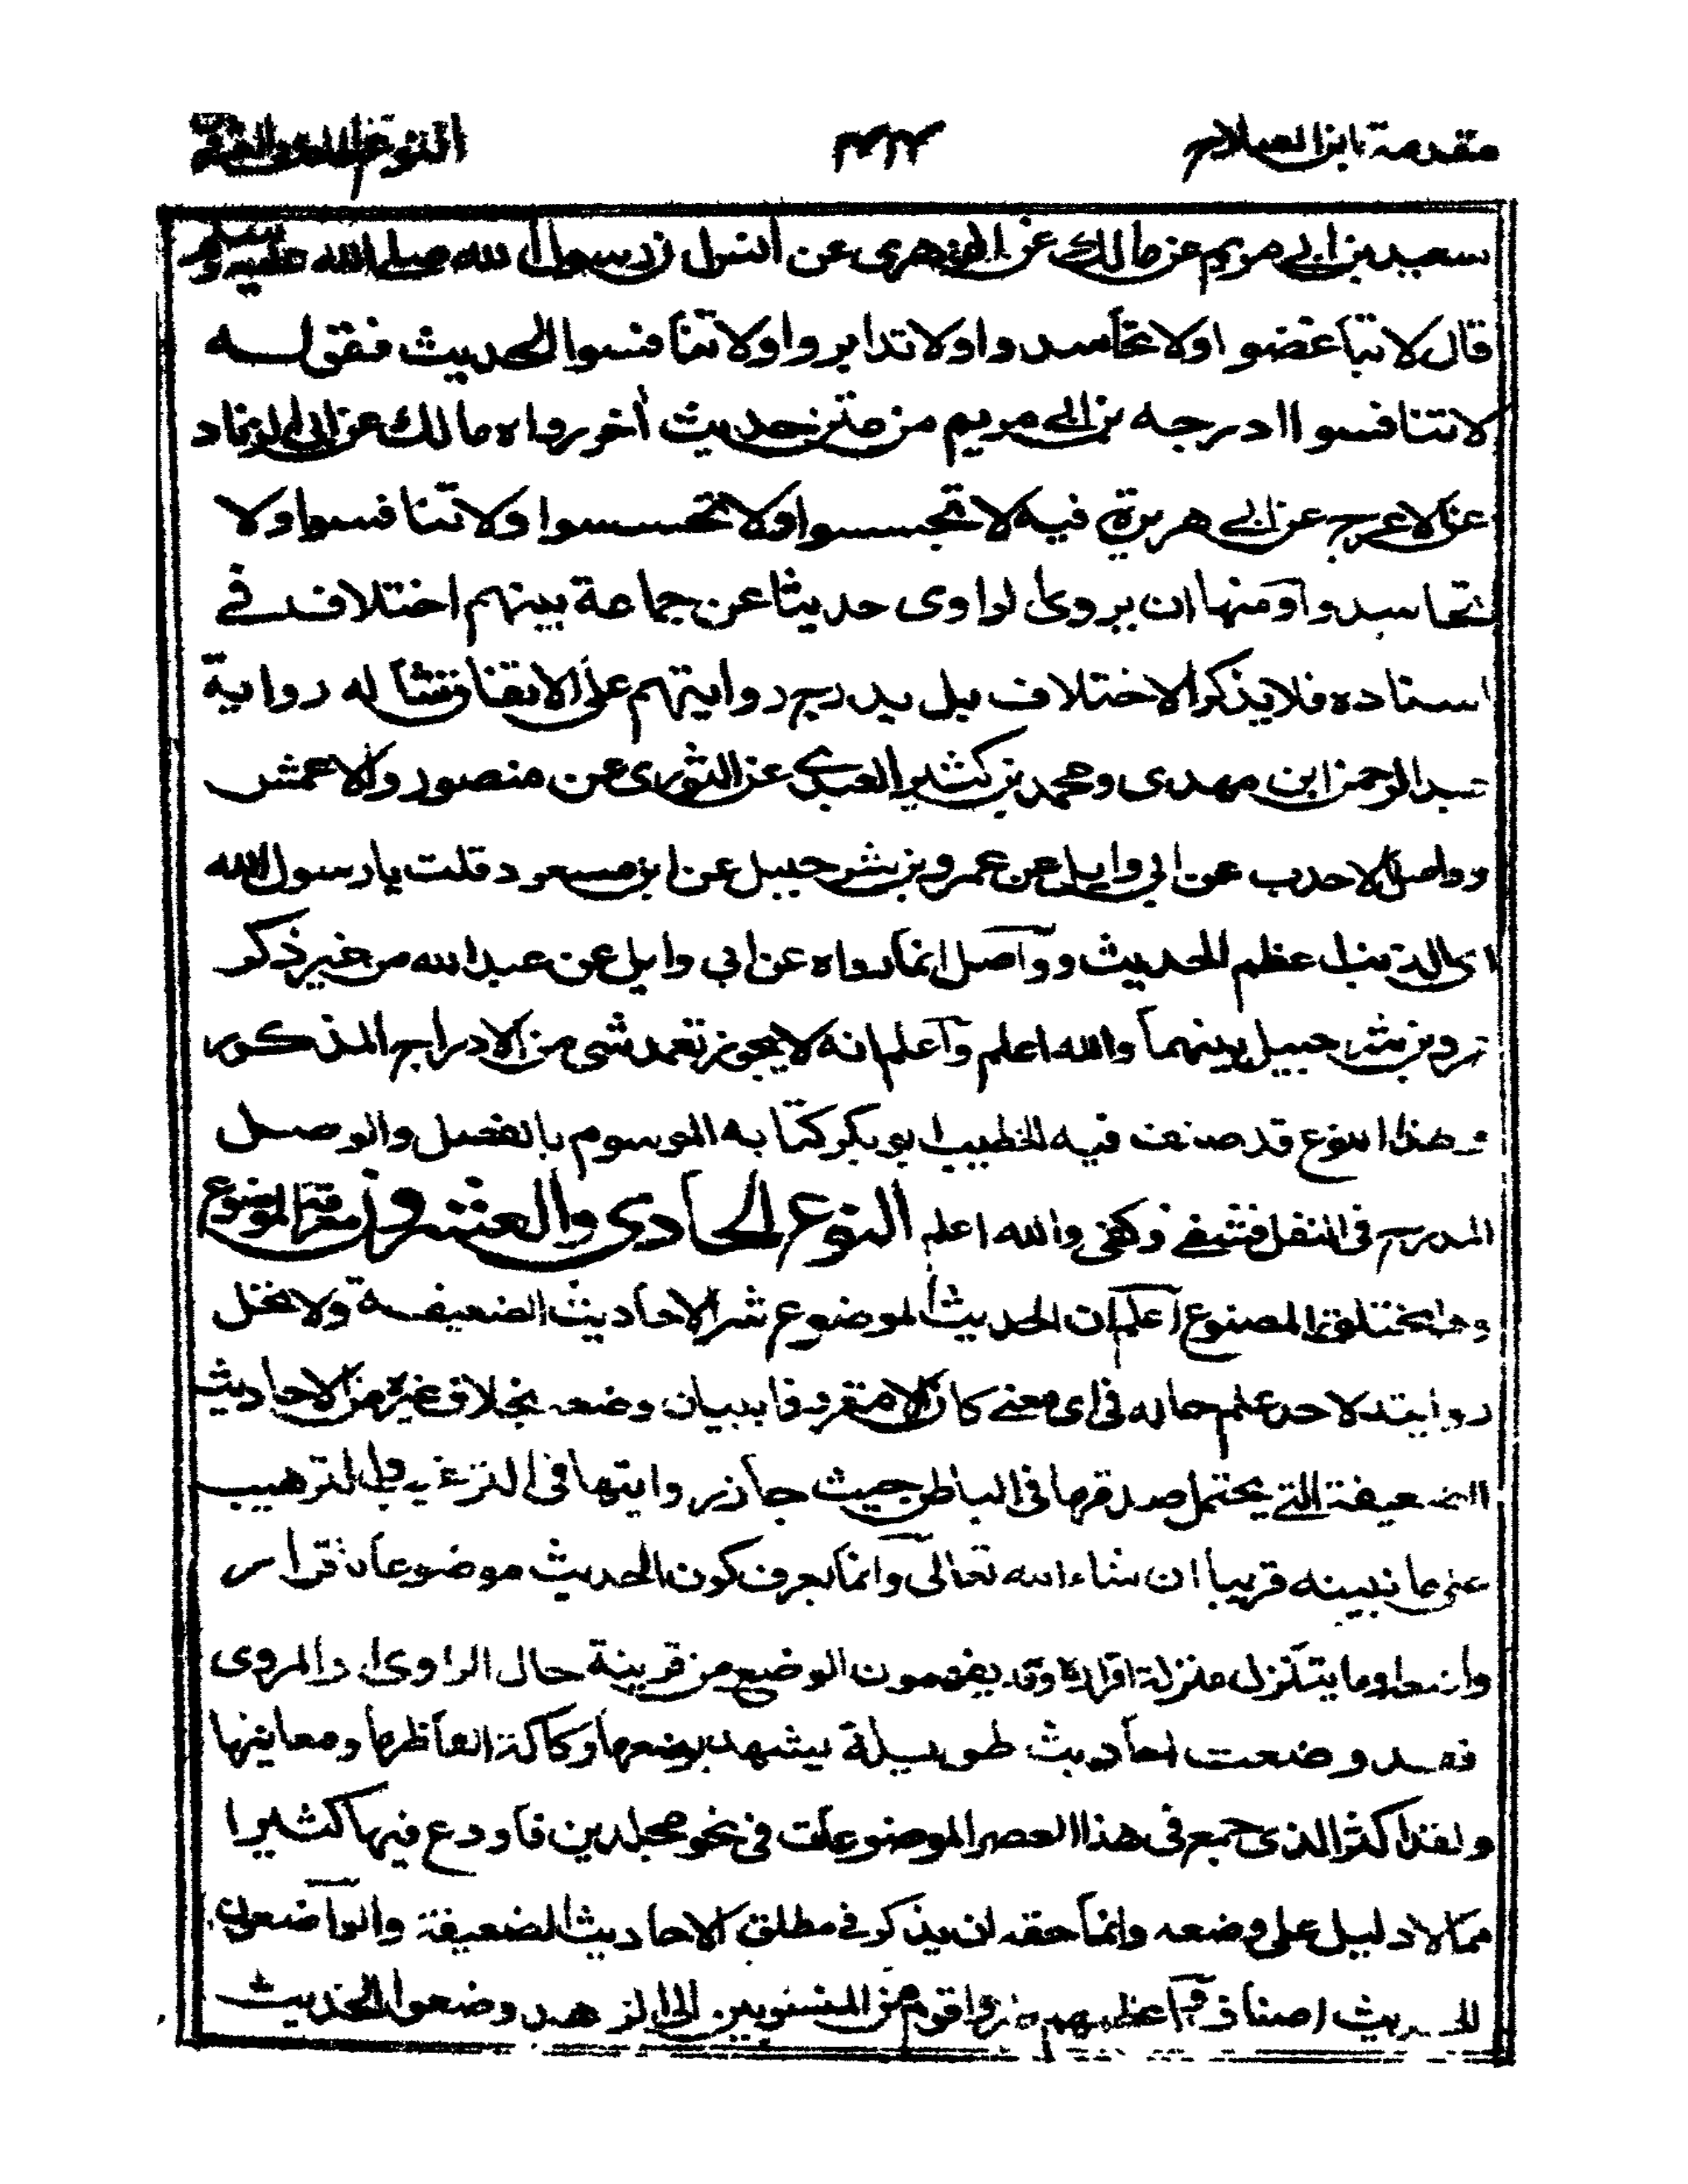 مقدمة ابن الصلاح
سعيد بن ابي مريم عن مالك عن الزهرى عن انس ان رسول الله صلى الله عليه وسلم
قال لا تباغضوا ولا تحاسدوا ولا تدابروا ولا تنافسوا الحديث فقوله
لا تنافسوا ادرجه بن ابي مريم من متن حديث أخر رواه مالك عن ابي الزناد
عن الاعرج عن ابي هريرة فيه لا تجسسوا ولا تحسسوا ولا تنافسوا ولا
تحاسدوا ومنها ان يروى الراوى حديثا عن جماعة بينهم اختلاف في
اسناده فلا يذكر الاختلاف بل يدرج روايتهم على الاتفاق مثاله رواية
عبد الرحمن ابن مهدى ومحمد بن كثير العبدى عن الثورى عن منصور والاعمش
وواصل الاحدب عن ابي وايل عن عمرو بن شرحبيل عن ابن مسعود قلت يا رسول الله
اى الذنب اعظم الحديث وواصل انما رواه عن ابي وايل عن عبد الله من غير ذكر
عمرو بن شرحبيل بينهما والله اعلم واعلم انه لا يجوز تعمد شئ من الادراج المذكور
وهذا النوع قد صنف فيه الخطيب ابو بكر كتابه الموسوم بالفصل والوصل
المدرج في النقل فشفى وكفى والله اعلم النوع الحادى والعشرون معرفة الموضوع
وهو المختلق المصنوع اعلم ان الحديث الموضوع شر الاحاديث الضعيفة ولا تحل
روايته لاحد علم حاله في اى معنى كان الا مقرونا ببيان وضعه بخلاف غيره من الاحاديث
الضعيفة التي يحتمل صدقها في الباطن حيث جاز روايتها في الترغيب والترهيب
على ما نبينه قريبا ان شاء الله تعالى وانما يعرف كون الحديث موضوعا باقرار
واضعه او ما يتنزل منزلة اقراره وقد يفهمون الوضع من قرينة حال الراوى او المروى
فقد وضعت احاديث طويلة يشهد بوضعها ركاكة الفاظها ومعانيها
ولقد اكثر الذى جمع في هذا العصر الموضوعات في نحو مجلدين فاودع فيها كثيرا
مما لا دليل على وضعه وانما حقه ان يذكر في مطلق الاحاديث الضعيفة والواضعون
الحديث اصناف واعظمهم ضررا قوم من المنسوبين الى الزهد وضعوا الحديث